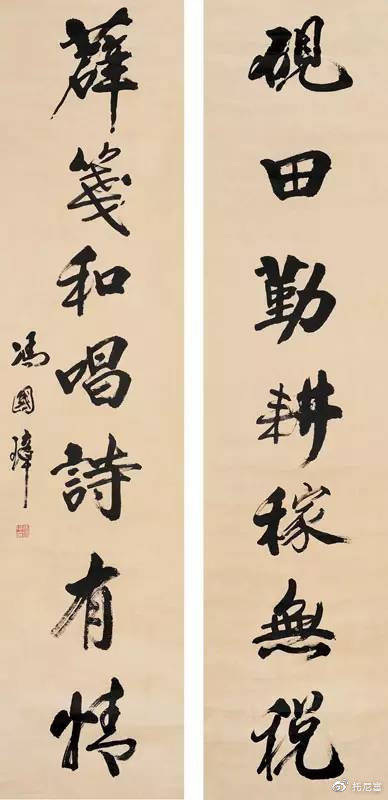 硯田勤耕稼無税
薛箋和唱詩有情
馮國璋
@托尼塞